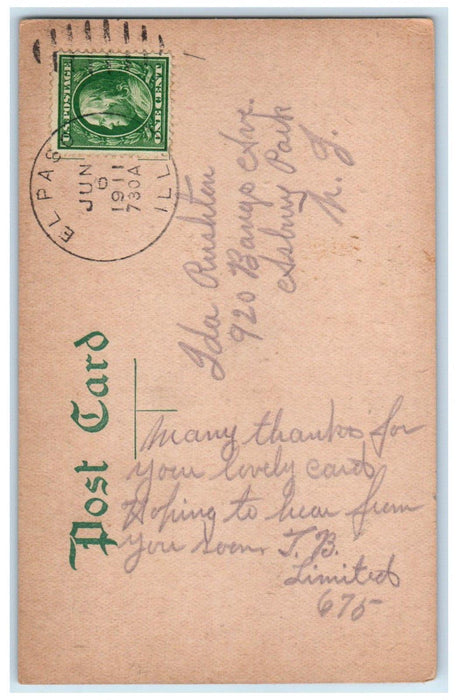 U.S. POSTAGE
ONE CENT
EL PASO
ILL.
JUN
6
1911
730A
Post Card
Ida Rushton
920 Bangs Ave.
Asbury Park
N. J.
Many thanks for
your lovely card
Hoping to hear from
you soon. J. B.
Limited
675